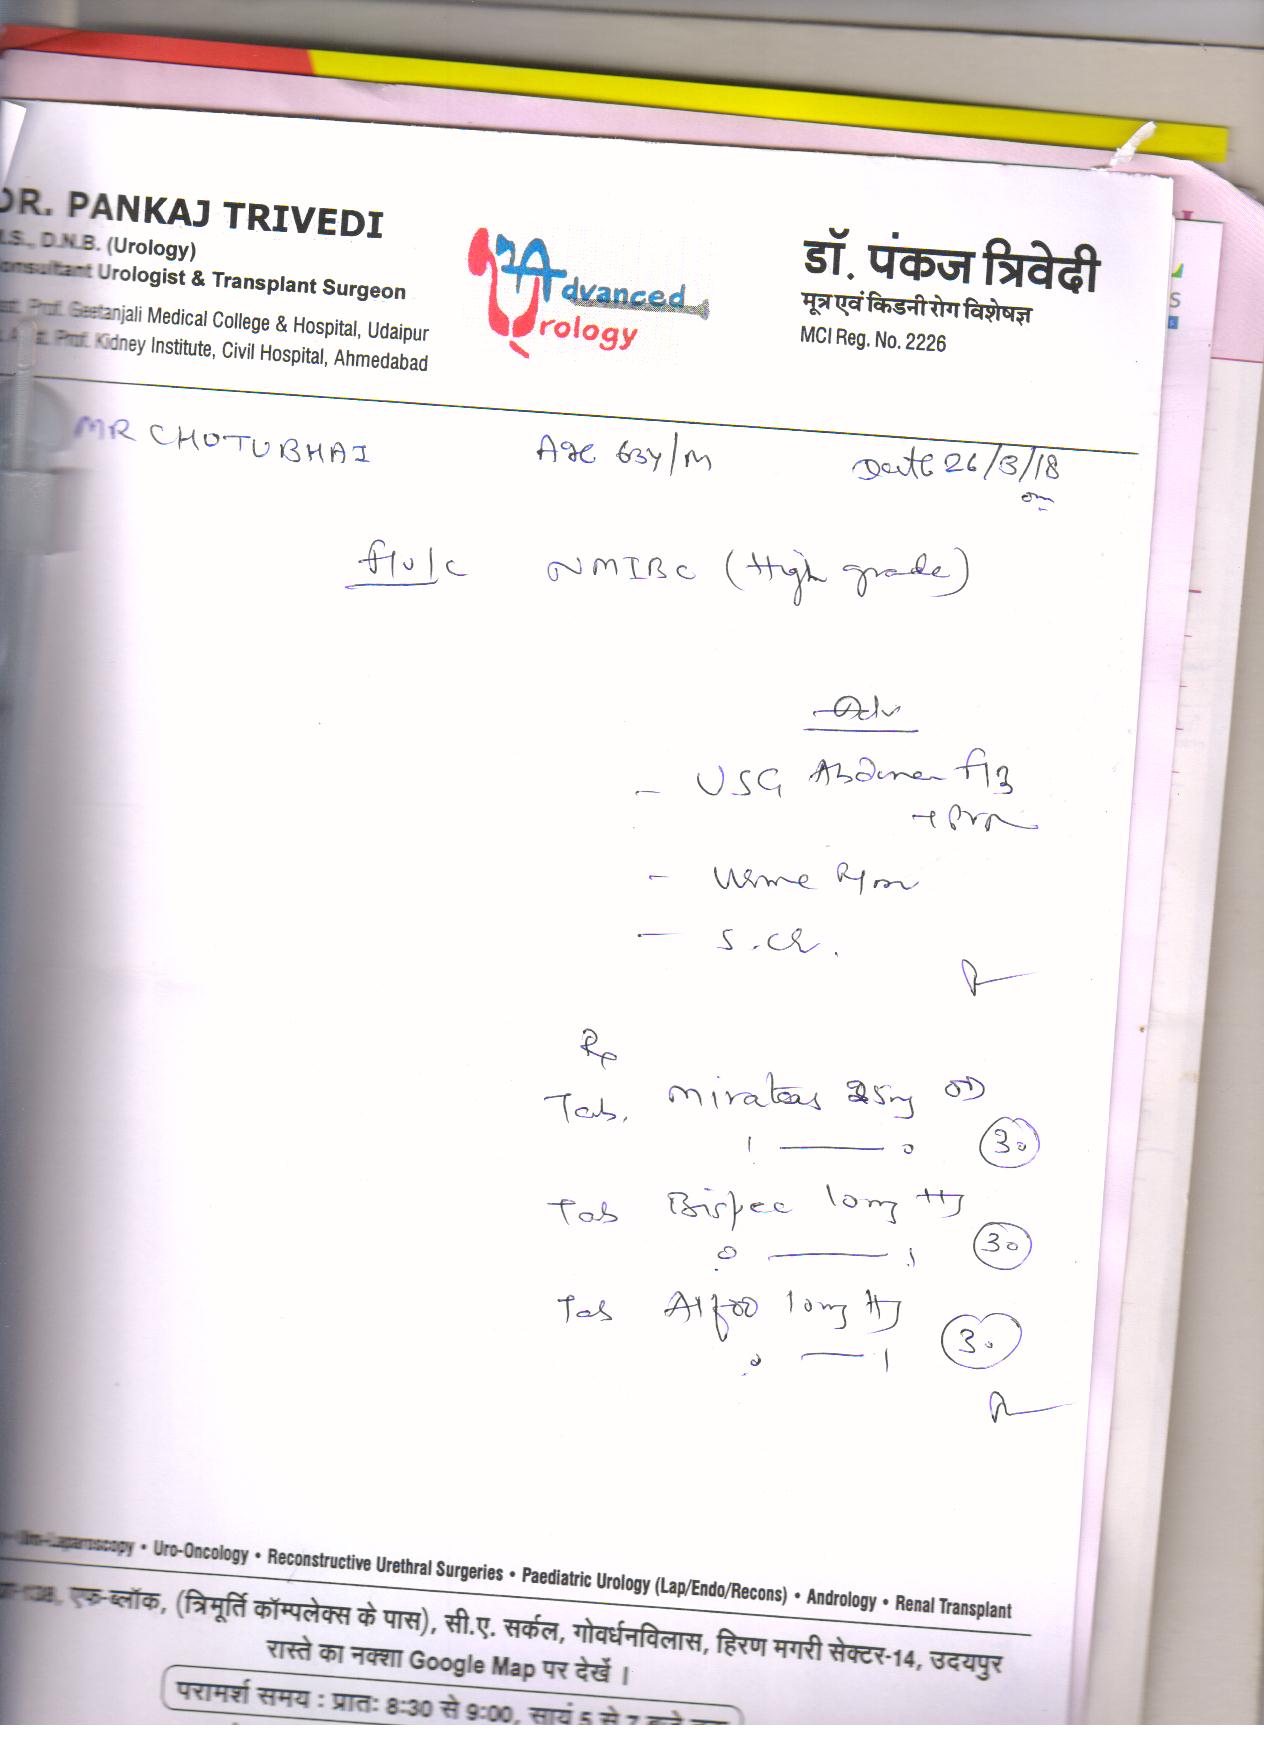 DR. PANKAJ TRIVEDI
M.S., D.N.B. (Urology)
Consultant Urologist & Transplant Surgeon
Prof. Geetanjali Medical College & Hospital, Udaipur
Prof. Kidney Institute, Civil Hospital, Ahmedabad
Advanced
Urology
डॉ. पंकज त्रिवेदी
मूत्र एवं किडनी रोग विशेषज्ञ
MCI Reg. No. 2226
MR CHOTUBHAI Age 63y/M Date 26/3/18
F/U/C NMIBC (High grade)
Adv
- USG Abdomen
- Urine R/M
- S.Cr.
Rp
Tab. 25mg OD
1 — 0 30
Tab 10mg
0 — 1 30
Tab Alfoo 10mg
0 — 1 30
Laparoscopy • Uro-Oncology • Reconstructive Urethral Surgeries • Paediatric Urology (Lap/Endo/Recons) • Andrology • Renal Transplant
एफ-ब्लॉक, (त्रिमूर्ति कॉम्पलेक्स के पास), सी.ए. सर्कल, गोवर्धनविलास, हिरण मगरी सेक्टर-14, उदयपुर
रास्ते का नक्शा Google Map पर देखें ।
परामर्श समय : प्रातः 8:30 से 9:00, सायं 5 से 7